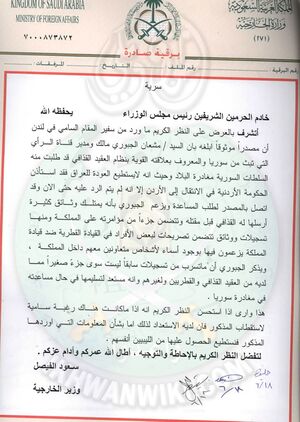 KINGDOM OF SAUDI ARABIA
MINISTRY OF FOREIGN AFFAIRS
٧٠٠٠٨٧٣٨٧٢
المملكة العربية السعودية
وزارة الخارجية
(١٧١)
برقية صادرة
الرقم
التاريخ
المرفقات
سرية
خادم الحرمين الشريفين رئيس مجلس الوزراء يحفظه الله
أتشرف بالعرض على النظر الكريم ما ورد من سفير المقام السامي في لندن
أن مصدراً موثوقاً أبلغه بان السيد / مشعان الجبوري مالك ومدير قناة الرأي
التي تبث من سوريا والمعروف بعلاقاته القوية بنظام العقيد القذافي قد طلبت منه
السلطات السورية مغادرة البلاد وحيث انه لايستطيع العودة للعراق فقد استأذن
الحكومة الأردنية في الانتقال إلى الأردن إلا انه لم يتم الرد عليه حتى الان وقد
اتصل بالمصدر لطلب المساعدة ويزعم الجبوري بأنه يمتلك وثائق كثيرة
أرسلها له القذافي قبل مقتله وتتضمن جزءاً من مؤامرته على المملكة ومنها
تسجيلات ووثائق تتضمن تصريحات لبعض الأفراد في القيادة القطرية ضد قيادة
المملكة يزعمون فيها بوجود أسماء لأشخاص متعاونين معهم داخل المملكة ،
ويذكر الجبوري أن ماتسرب من تسجيلات سابقا ليست سوى جزء صغيراً مما
لديه من العقيد القذافي والقطريين ولغيرهم وانه مستعد لتسليمها في حال مساعدته
في مغادرة سوريا .
هذا وارى اذا استحسن النظر الكريم انه اذا ماكانت هناك رغبة سامية
لاستقطاب المذكور فان لديه الاستعداد لذلك اما بشأن المعلومات التي اوردها
المذكور فنستطيع الحصول عليها من الليبيين أنفسهم .
لتفضل النظر الكريم بالإحاطة والتوجيه ، أطال الله عمركم وأدام عزكم .
سعود الفيصل
وزير الخارجية
IKHWANWIKI.COM